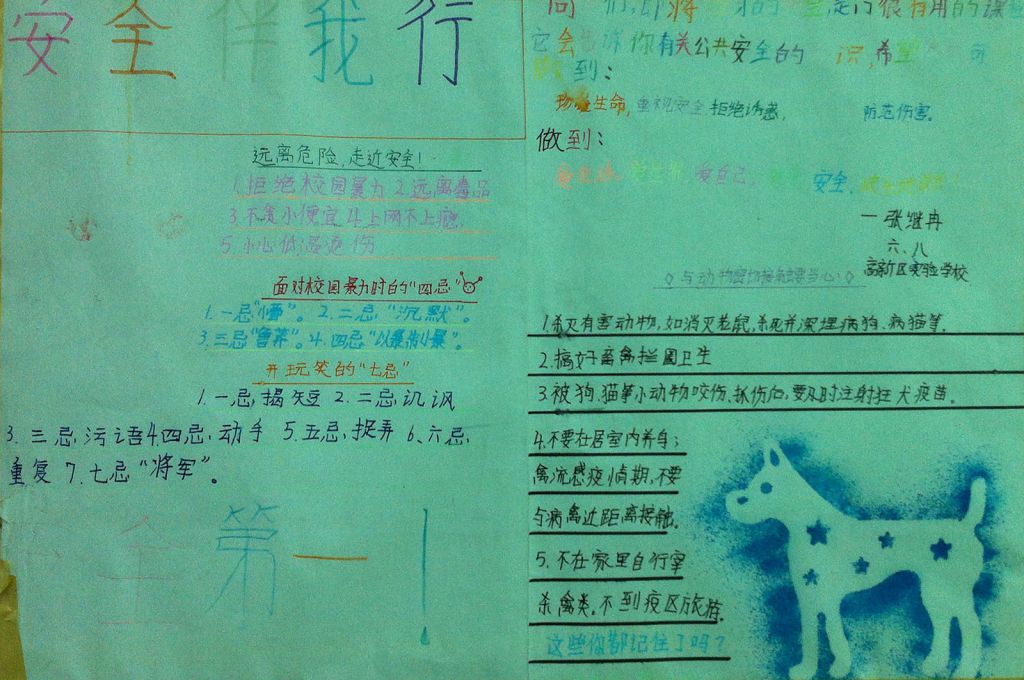 安全伴我行
远离危险,走近安全!
1.拒绝校园暴力 2.远离毒品
3.不贪小便宜 4.上网不上瘾.
5.小心低温烫伤
面对校园暴力时的“四忌”
1.一忌“懵”。 2.二忌,“沉默”。
3.三忌“鲁莽”。4.四忌“以暴制暴”。
开玩笑的“七忌”
1.一忌,揭短 2.二忌,讥讽
3.三忌,污语 4.四忌,动手 5.五忌,捉弄 6.六忌,
重复 7.七忌“将军”。
全第一!
它会告诉你有关公共安全的 识,希望
到:
珍惜生命,重视安全,拒绝诱惑, 防范伤害。
做到:
爱自己, 安全,
一张继冉
六.八
高新区实验学校
◇与动物密切接触要当心!◇
1.杀灭有害动物,如消灭老鼠,杀死并深埋病狗、病猫等.
2.搞好畜禽拦圈卫生
3.被狗.猫等小动物咬伤、抓伤后,要及时注射狂犬疫苗。
4.不要在居室内养鸟;
禽流感疫情期,不要
与病禽近距离接触。
5.不在家里自行宰
杀禽类,不到疫区旅游.
这些你都记住了吗?